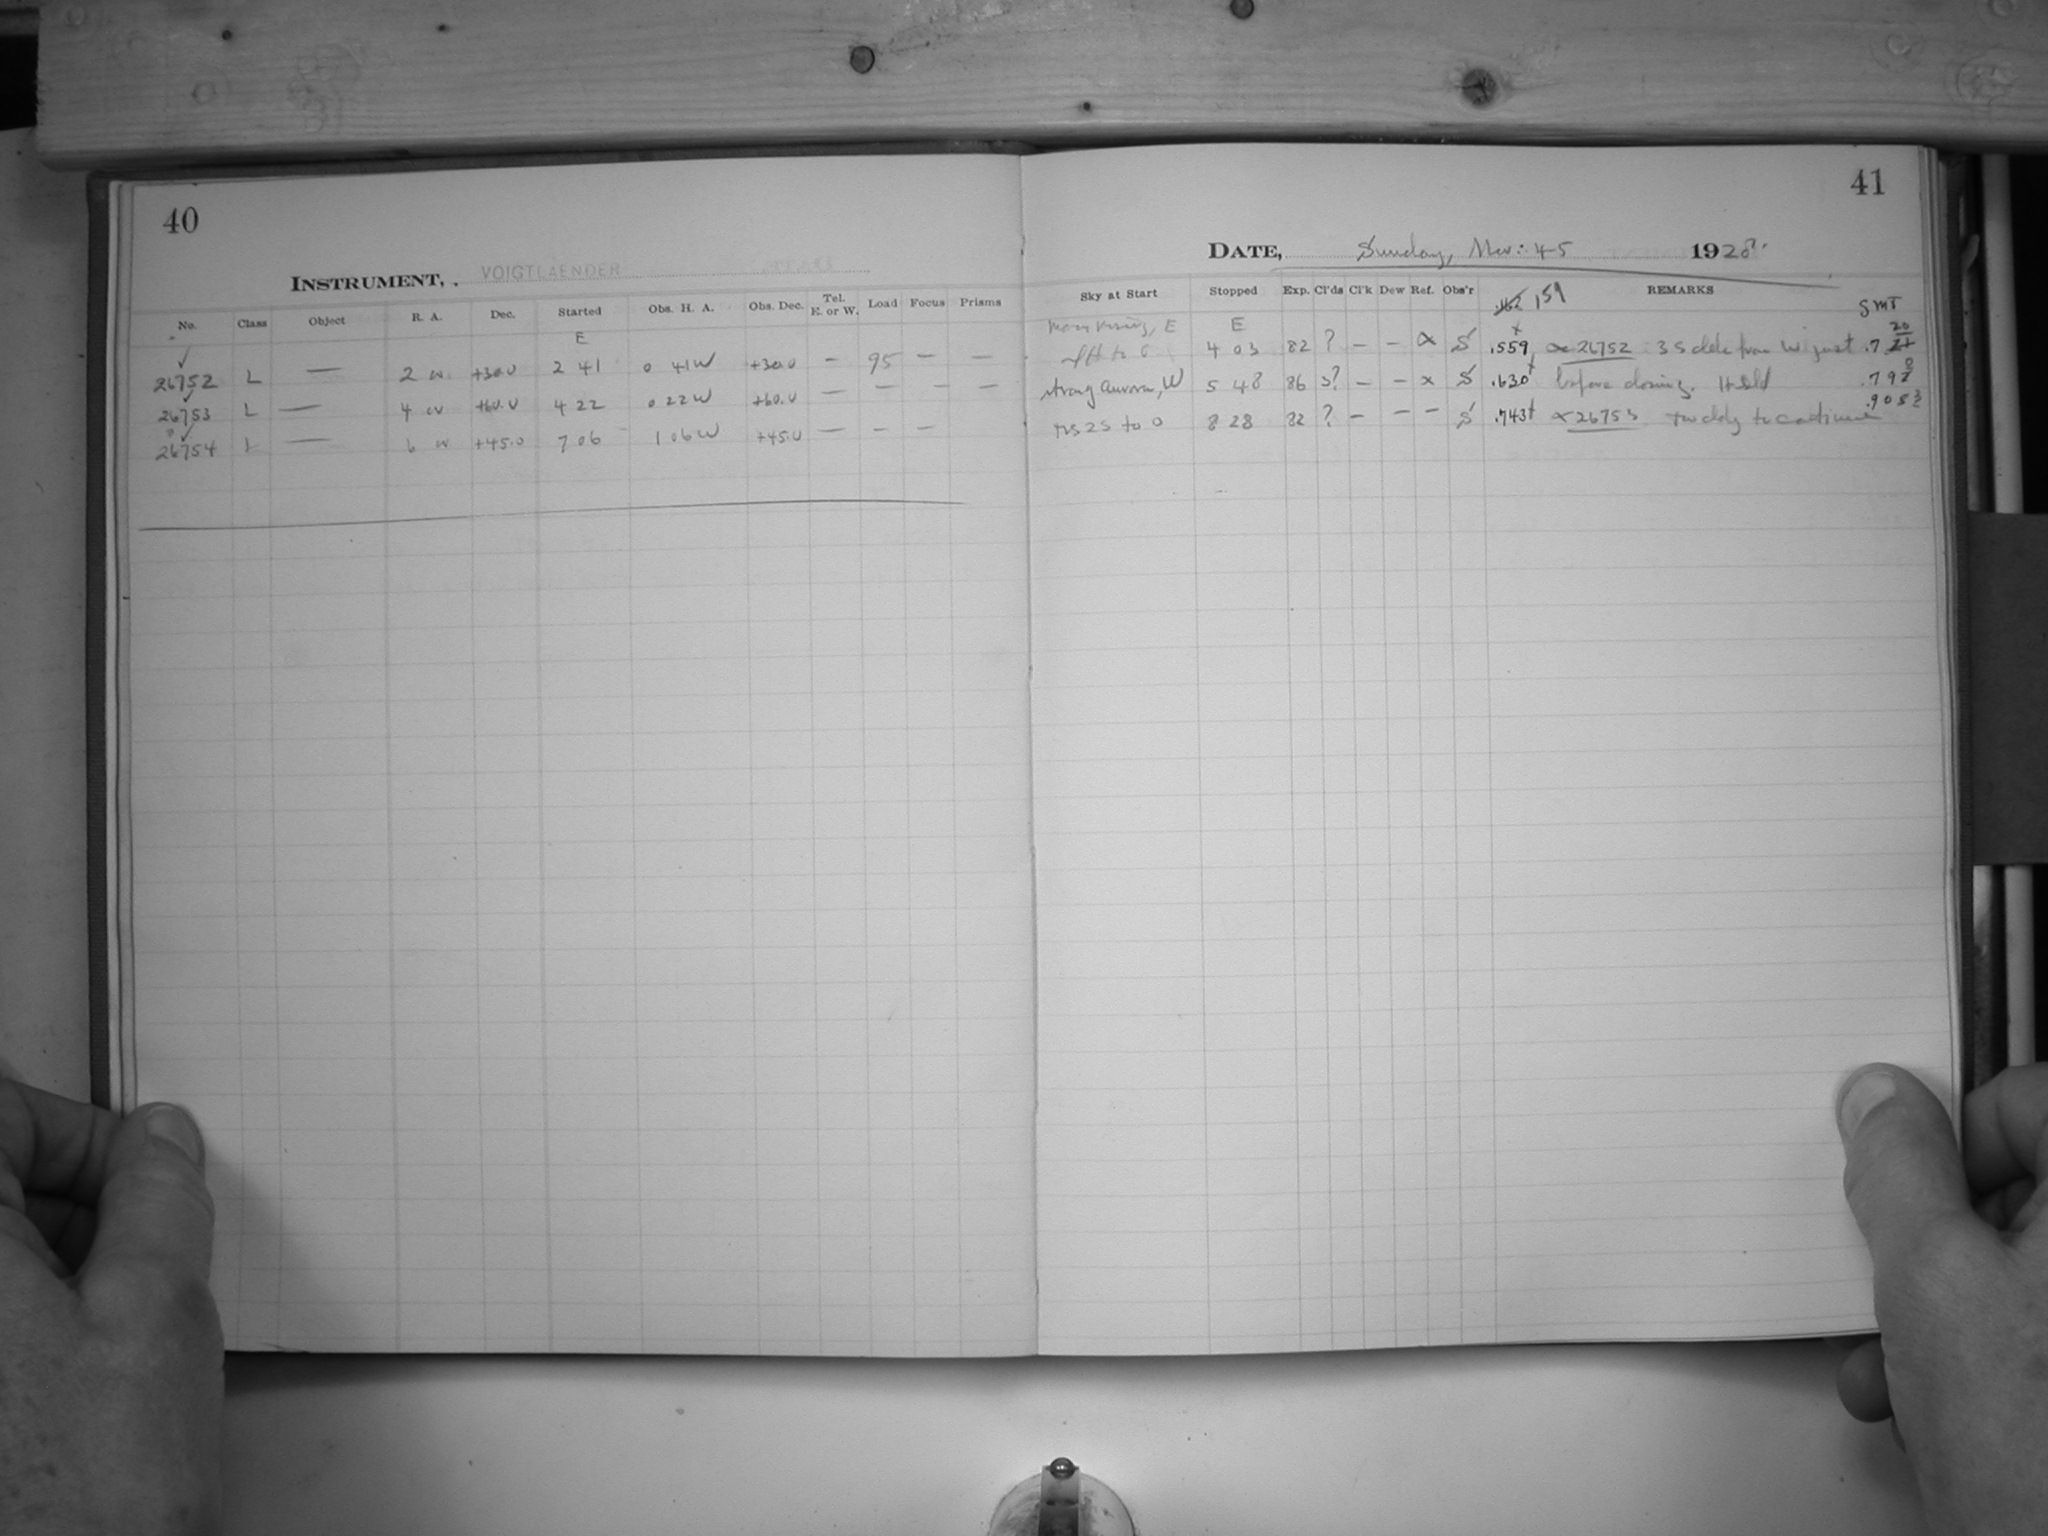 40
INSTRUMENT, . VOIGTLAENDER
No. Class Object R. A. Dec. Started Obs. H. A. Obs. Dec. Tel. E. or W. Load Focus Prisms
E
26752 L — 2 w +30.0 2 41 0 41 W +30.0 — 95 — —
26753 L — 4 w +60.0 4 22 0 22 W +60.0 — — — —
26754 L — 6 w +45.0 7 06 1 06 W +45.0 — — —
41
DATE, Sunday, Mar: 4-5 1928.
Sky at Start Stopped Exp. Cl'ds Cl'k Dew Ref. Obs'r .162 .159 REMARKS SMT
E E
to 4 03 82 ? — — × S .559 26752 from W just .7 20
strong aurora, W 5 48 86 s? — — × S .630 before closing. .798
to 0 8 28 82 ? — — — S .743 26753 too cldy to continue .905